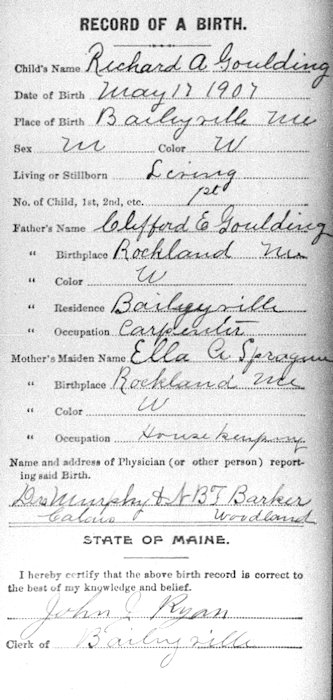 RECORD OF A BIRTH.
Child's Name Richard A Goulding
Date of Birth May 17 1907
Place of Birth Baileyville Me
Sex M Color W
Living or Stillborn Living
No. of Child, 1st, 2nd, etc. 1st
Father's Name Clifford E Goulding
" Birthplace Rockland Me
" Color W
" Residence Baileyville
" Occupation Carpenter
Mother's Maiden Name Ella A Sprague
" Birthplace Rockland Me
" Color W
" Occupation Housekeeping
Name and address of Physician (or other person) report-
ing said Birth.
Drs Murphy & N B T Barker
Calais Woodland
STATE OF MAINE.
I hereby certify that the above birth record is correct to
the best of my knowledge and belief.
John J Ryan
Clerk of Baileyville